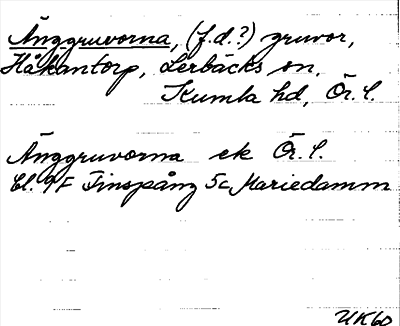 Änggruvorna, (f.d.?) gruvor,
Håkantorp, Lerbäcks sn,
Kumla hd, Ör. l.
Änggruvorna ek Ör. l.
Bl. 9F Finspång 5c Mariedamm
UK60